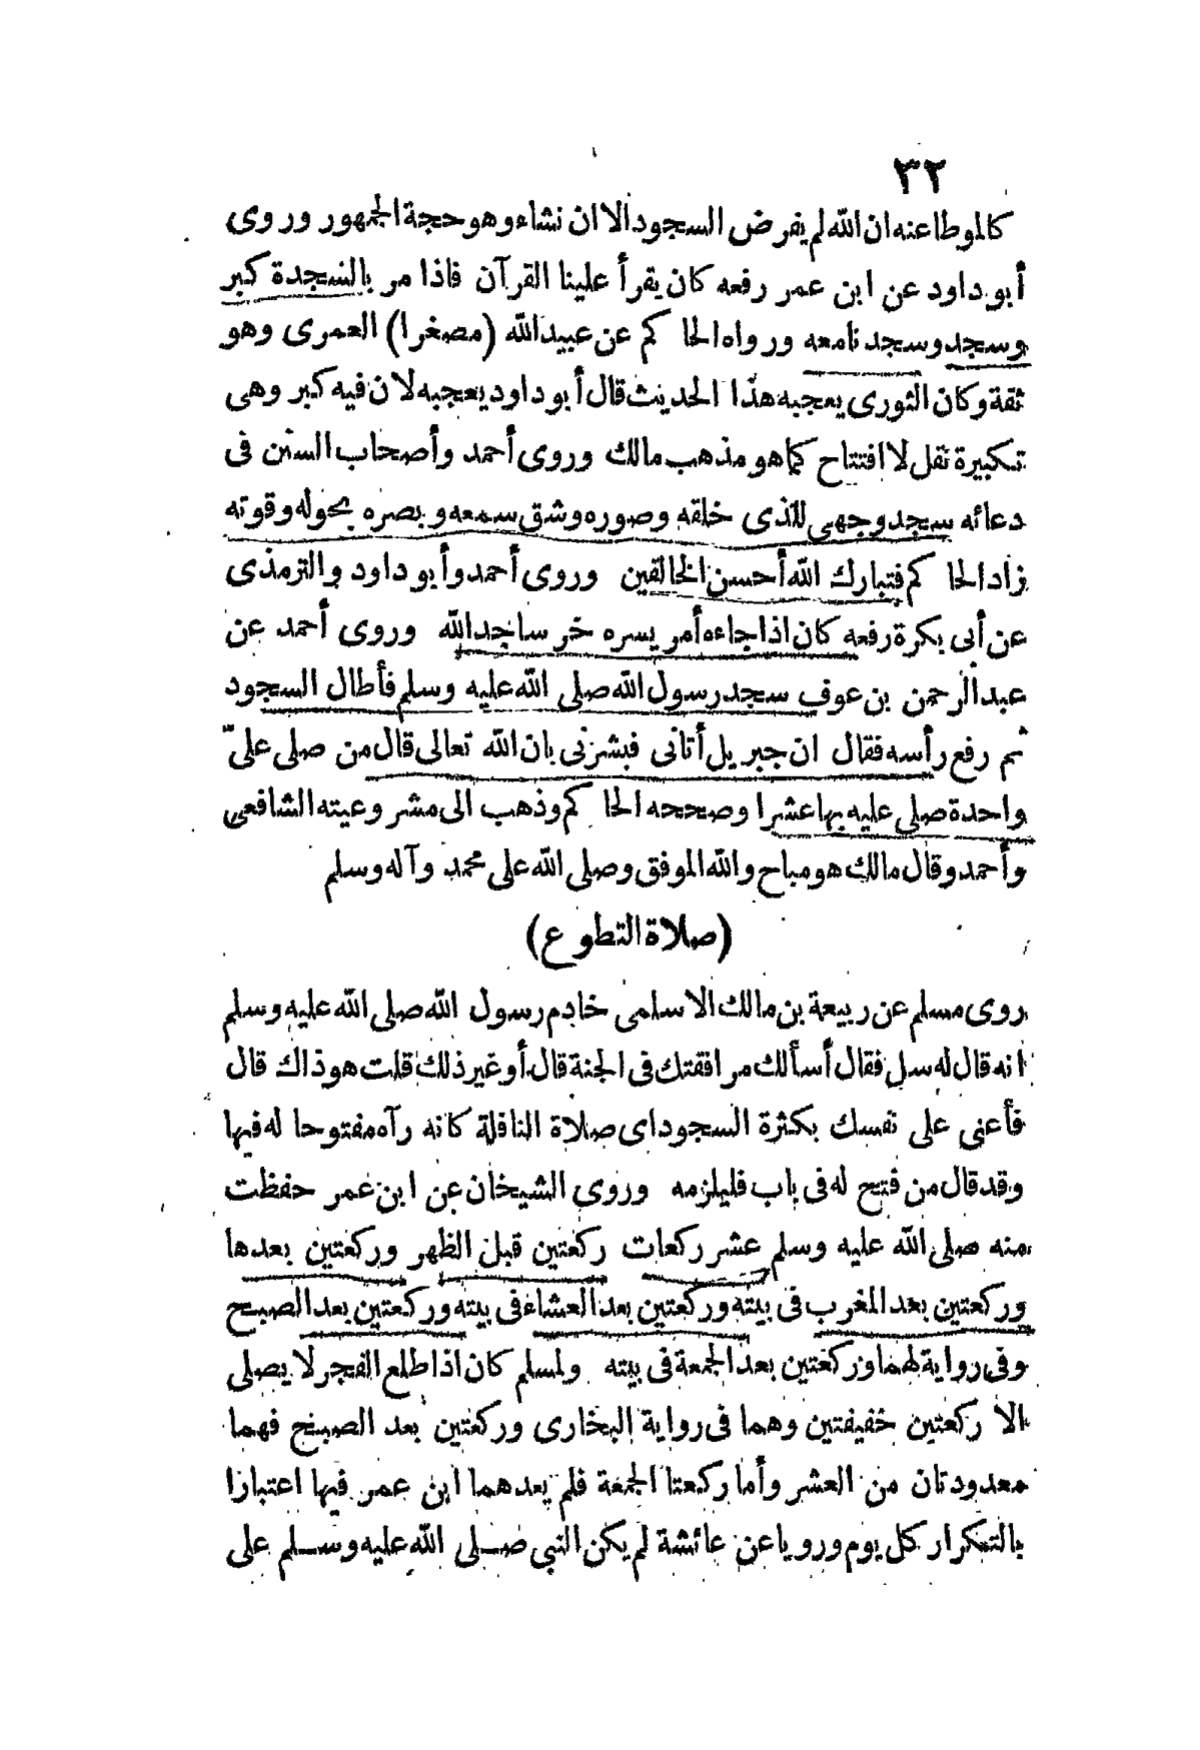 ٣٢
كالموطا عنه ان الله لم يفرض السجود الا ان نشاء وهو حجة الجمهور وروى
أبو داود عن ابن عمر رفعه كان يقرأ علينا القرآن فاذا مر بالسجدة كبر
وسجد وسجدنا معه ورواه الحاكم عن عبيد الله (مصغرا) العمرى وهو
ثقة وكان الثورى يعجبه هذا الحديث قال أبو داود يعجبه لان فيه كبر وهى
تكبيرة نقل لا افتتاح كما هو مذهب مالك وروى أحمد وأصحاب السنن فى
دعائه سجد وجهى للذى خلقه وصوره وشق سمعه وبصره بحوله وقوته
زاد الحاكم فتبارك الله أحسن الخالقين وروى أحمد وأبو داود والترمذى
عن أبى بكرة رفعه كان اذا جاءه أمر يسره خر ساجد الله وروى أحمد عن
عبد الرحمن بن عوف سجد رسول الله صلى الله عليه وسلم فأطال السجود
ثم رفع رأسه فقال ان جبريل أتانى فبشرنى بان الله تعالى قال من صلى علىّ
واحدة صلى عليه بها عشرا وصححه الحاكم وذهب الى مشروعيته الشافعى
وأحمد وقال مالك هو مباح والله الموفق وصلى الله على محمد وآله وسلم
(صلاة التطوع)
روى مسلم عن ربيعة بن مالك الاسلمى خادم رسول الله صلى الله عليه وسلم
انه قال له سل فقال أسألك مرافقتك فى الجنة قال أو غير ذلك قلت هو ذاك قال
فأعنى على نفسك بكثرة السجود اى صلاة النافلة كانه رآه مفتوحا له فيها
وقد قال من فتح له فى باب فليلزمه وروى الشيخان عن ابن عمر حفظت
منه صلى الله عليه وسلم عشر ركعات ركعتين قبل الظهر وركعتين بعدها
وركعتين بعد المغرب فى بيته وركعتين بعد العشاء فى بيته وركعتين بعد الصبح
وفى رواية لهما وركعتين بعد الجمعة فى بيته ولمسلم كان اذا طلع الفجر لا يصلى
الا ركعتين خفيفتين وهما فى رواية البخارى وركعتين بعد الصبح فهما
معدودتان من العشر وأما ركعتا الجمعة فلم يعدهما ابن عمر فيها اعتبارا
بالتكرار كل يوم ورويا عن عائشة لم يكن النبى صلى الله عليه وسلم على